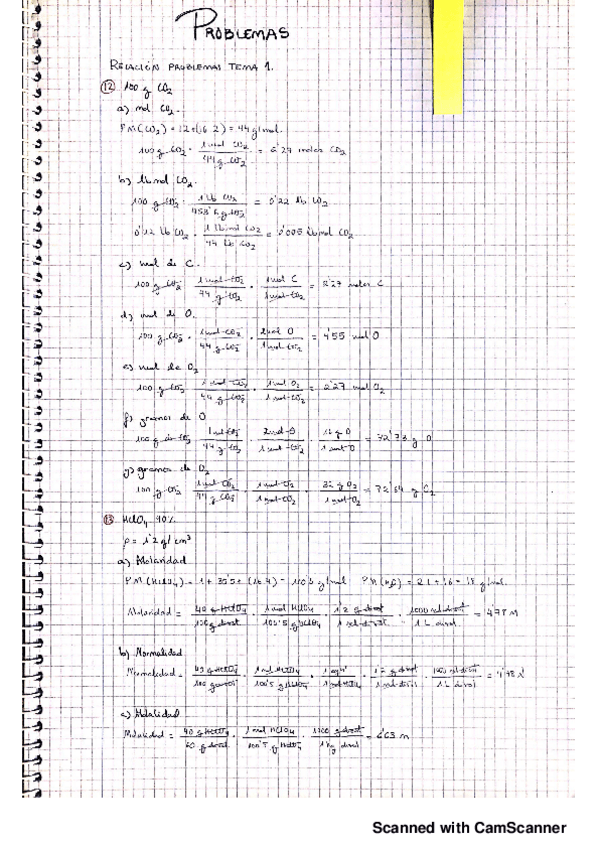 PROBLEMAS
RELACIÓN PROBLEMAS TEMA 1.
12 100 g CO2
a) mol CO2.
PM(CO2) = 12+(16·2) = 44 g/mol.
100 g CO2 · 1 mol CO2 / 44 g CO2 = 2'27 moles CO2
b) lbmol CO2.
100 g CO2 · 1 lb CO2 / 453'6 g CO2 = 0'22 lb CO2
lb CO2 · 1 lbmol CO2 / 44 lb CO2 = 0'005 lbmol CO2
c) mol de C.
100 g CO2 · 1 mol CO2 / 44 g CO2 · 1 mol C / 1 mol CO2 = 2'27 moles C
d) mol de O.
100 g CO2 · 1 mol CO2 / 44 g CO2 · 2 mol O / 1 mol CO2 = 4'55 mol O
e) mol de O2
100 g CO2 · 1 mol CO2 / 44 g CO2 · 1 mol O2 / 1 mol CO2 = 2'27 mol O2
f) gramos de O
100 g de CO2 · 1 mol CO2 / 44 g CO2 · 2 mol O / 1 mol CO2 · g O / 1 mol O = g O
g) gramos de O2
100 g CO2 · 1 mol CO2 / 44 g CO2 · 1 mol O2 / 1 mol CO2 · 32 g O2 / 1 mol O2 = 72'64 g O2
13 HClO4 40%
ρ = 1'2 g/cm3
a) Molaridad
PM(HClO4) = 1 + 35'5 + (16·4) = 100'5 g/mol = 2·1 + 16 = 18 g/mol.
Molaridad = 40 g HClO4 / 100 g disol · 1 mol HClO4 / 100'5 g HClO4 · 1'2 g disol / 1 ml disol · 1000 ml disol / 1 L disol. = 4'78 M
b) Normalidad
Normalidad = 40 g HClO4 / 100 g disol · 1 mol HClO4 / 100'5 g HClO4 · / 1 mol HClO4 · 1'2 g disol / 1 ml disol · 1000 ml disol / 1 L disol = 4'78 N
c) Molalidad
Molalidad = 40 g HClO4 / 60 g disol · 1 mol HClO4 / 100'5 g HClO4 · 1000 g disol / 1 kg disol = 6'63 m
Scanned with CamScanner